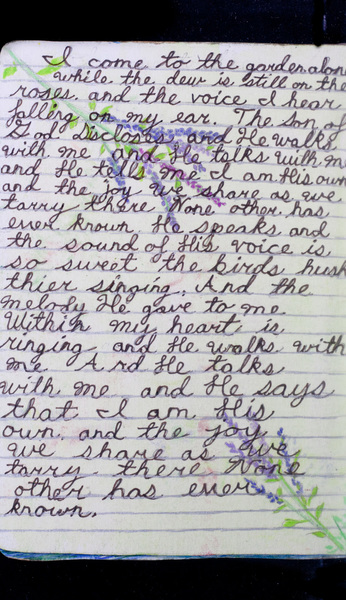 I come to the garden alone
while the dew is still on the
roses. and the voice I hear
falling on my ear. The son of
God discloses and He walks
with me and He talks with me
and He tells me I am His own
and the joy we share as we
tarry there None other has
ever known. He speaks and
the sound of His voice is
so sweet the birds hush
thier singing. And the
melody He gave to me
Within my heart is
ringing and He walks with
me And He talks
with me and He says
that I am His
own. and the joy
we share as we
tarry there None
other has ever
known.